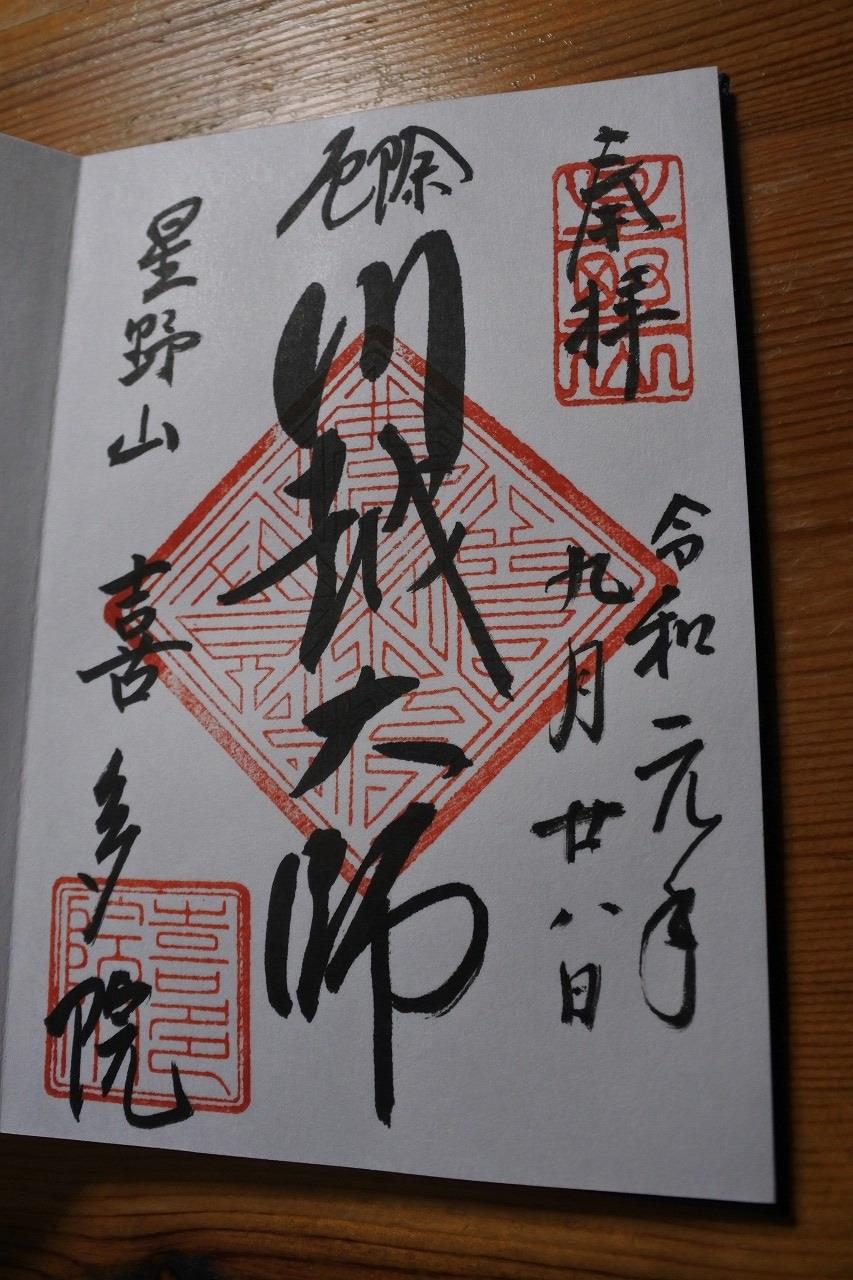 奉拝
令和元年
九月廿八日
厄除
川越大師
星野山
喜多院
喜多院